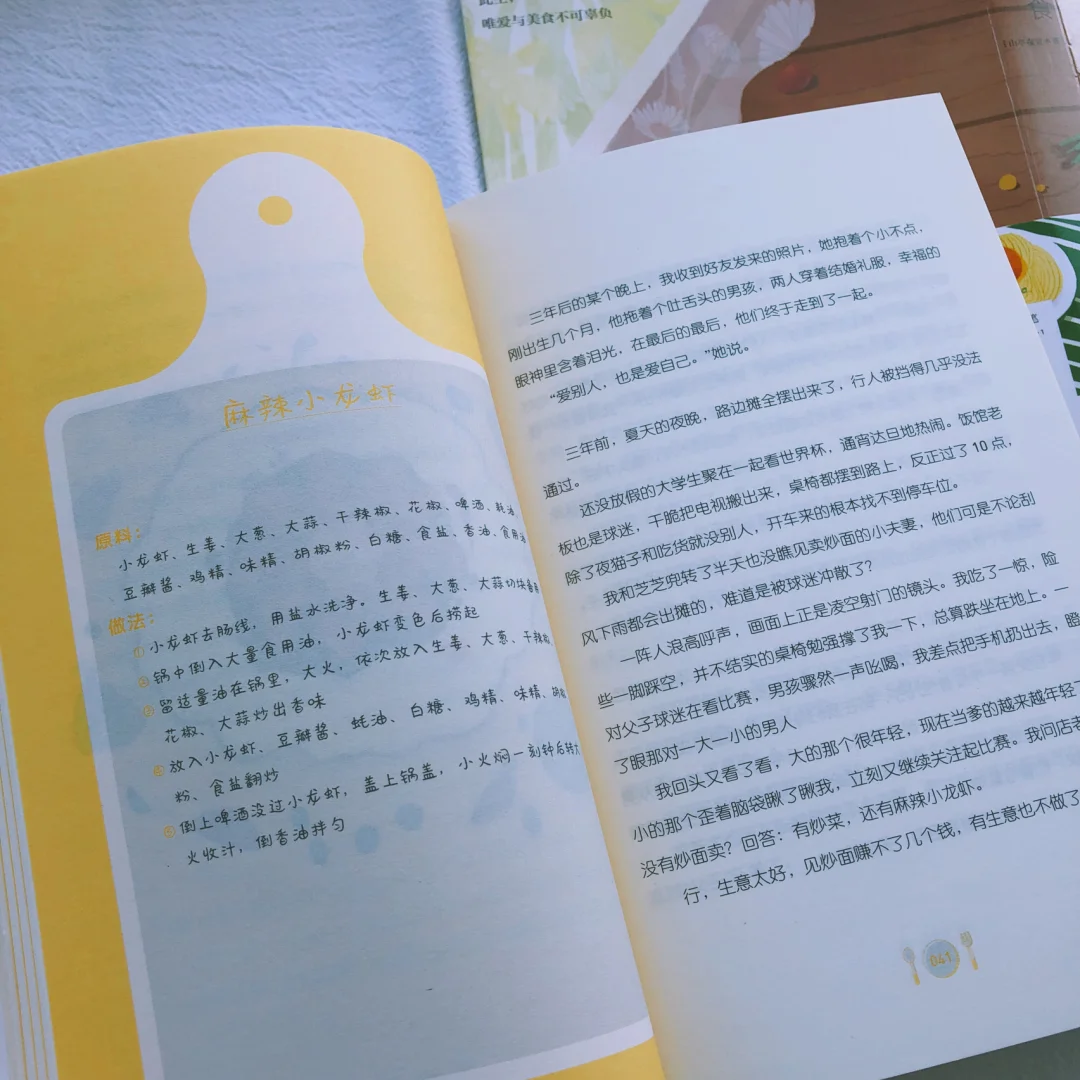 唯爱与美食不可辜负
麻辣小龙虾
原料：
小龙虾、生姜、大葱、大蒜、干辣椒、花椒、啤酒、蚝油
豆瓣酱、鸡精、味精、胡椒粉、白糖、食盐、香油、食用油
做法：
①小龙虾去肠线，用盐水洗净。生姜、大葱、大蒜切块备用
②锅中倒入大量食用油，小龙虾变色后捞起
③留适量油在锅里，大火，依次放入生姜、大葱、干辣椒
花椒、大蒜炒出香味
④放入小龙虾、豆瓣酱、蚝油、白糖、鸡精、味精、胡椒
粉、食盐翻炒
⑤倒上啤酒没过小龙虾，盖上锅盖，小火焖一刻钟后转大
火收汁，倒香油拌匀
三年后的某个晚上，我收到好友发来的照片，她抱着个小不点，
刚出生几个月，他拖着个吐舌头的男孩，两人穿着结婚礼服，幸福的
眼神里含着泪光，在最后的最后，他们终于走到了一起。
“爱别人，也是爱自己。”她说。
三年前，夏天的夜晚，路边摊全摆出来了，行人被挡得几乎没法
通过。
还没放假的大学生聚在一起看世界杯，通宵达旦地热闹。饭馆老
板也是球迷，干脆把电视搬出来，桌椅都摆到路上，反正过了10点，
除了夜猫子和吃货就没别人，开车来的根本找不到停车位。
我和芝芝兜转了半天也没瞧见卖炒面的小夫妻，他们可是不论刮
风下雨都会出摊的，难道是被球迷冲散了？
一阵人浪高呼声，画面上正是凌空射门的镜头。我吃了一惊，险
些一脚踩空，并不结实的桌椅勉强撑了我一下，总算跌坐在地上。一
对父子球迷在看比赛，男孩骤然一声吆喝，我差点把手机扔出去，瞪
了眼那对一大一小的男人
我回头又看了看，大的那个很年轻，现在当爹的越来越年轻了
小的那个歪着脑袋瞅了瞅我，立刻又继续关注起比赛。我问店老
没有炒面卖？回答：有炒菜，还有麻辣小龙虾。
行，生意太好，见炒面赚不了几个钱，有生意也不做了
041